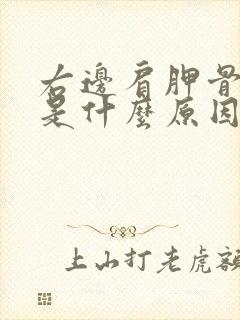 右邊肩胛骨
是什麼原因
上山打老虎額